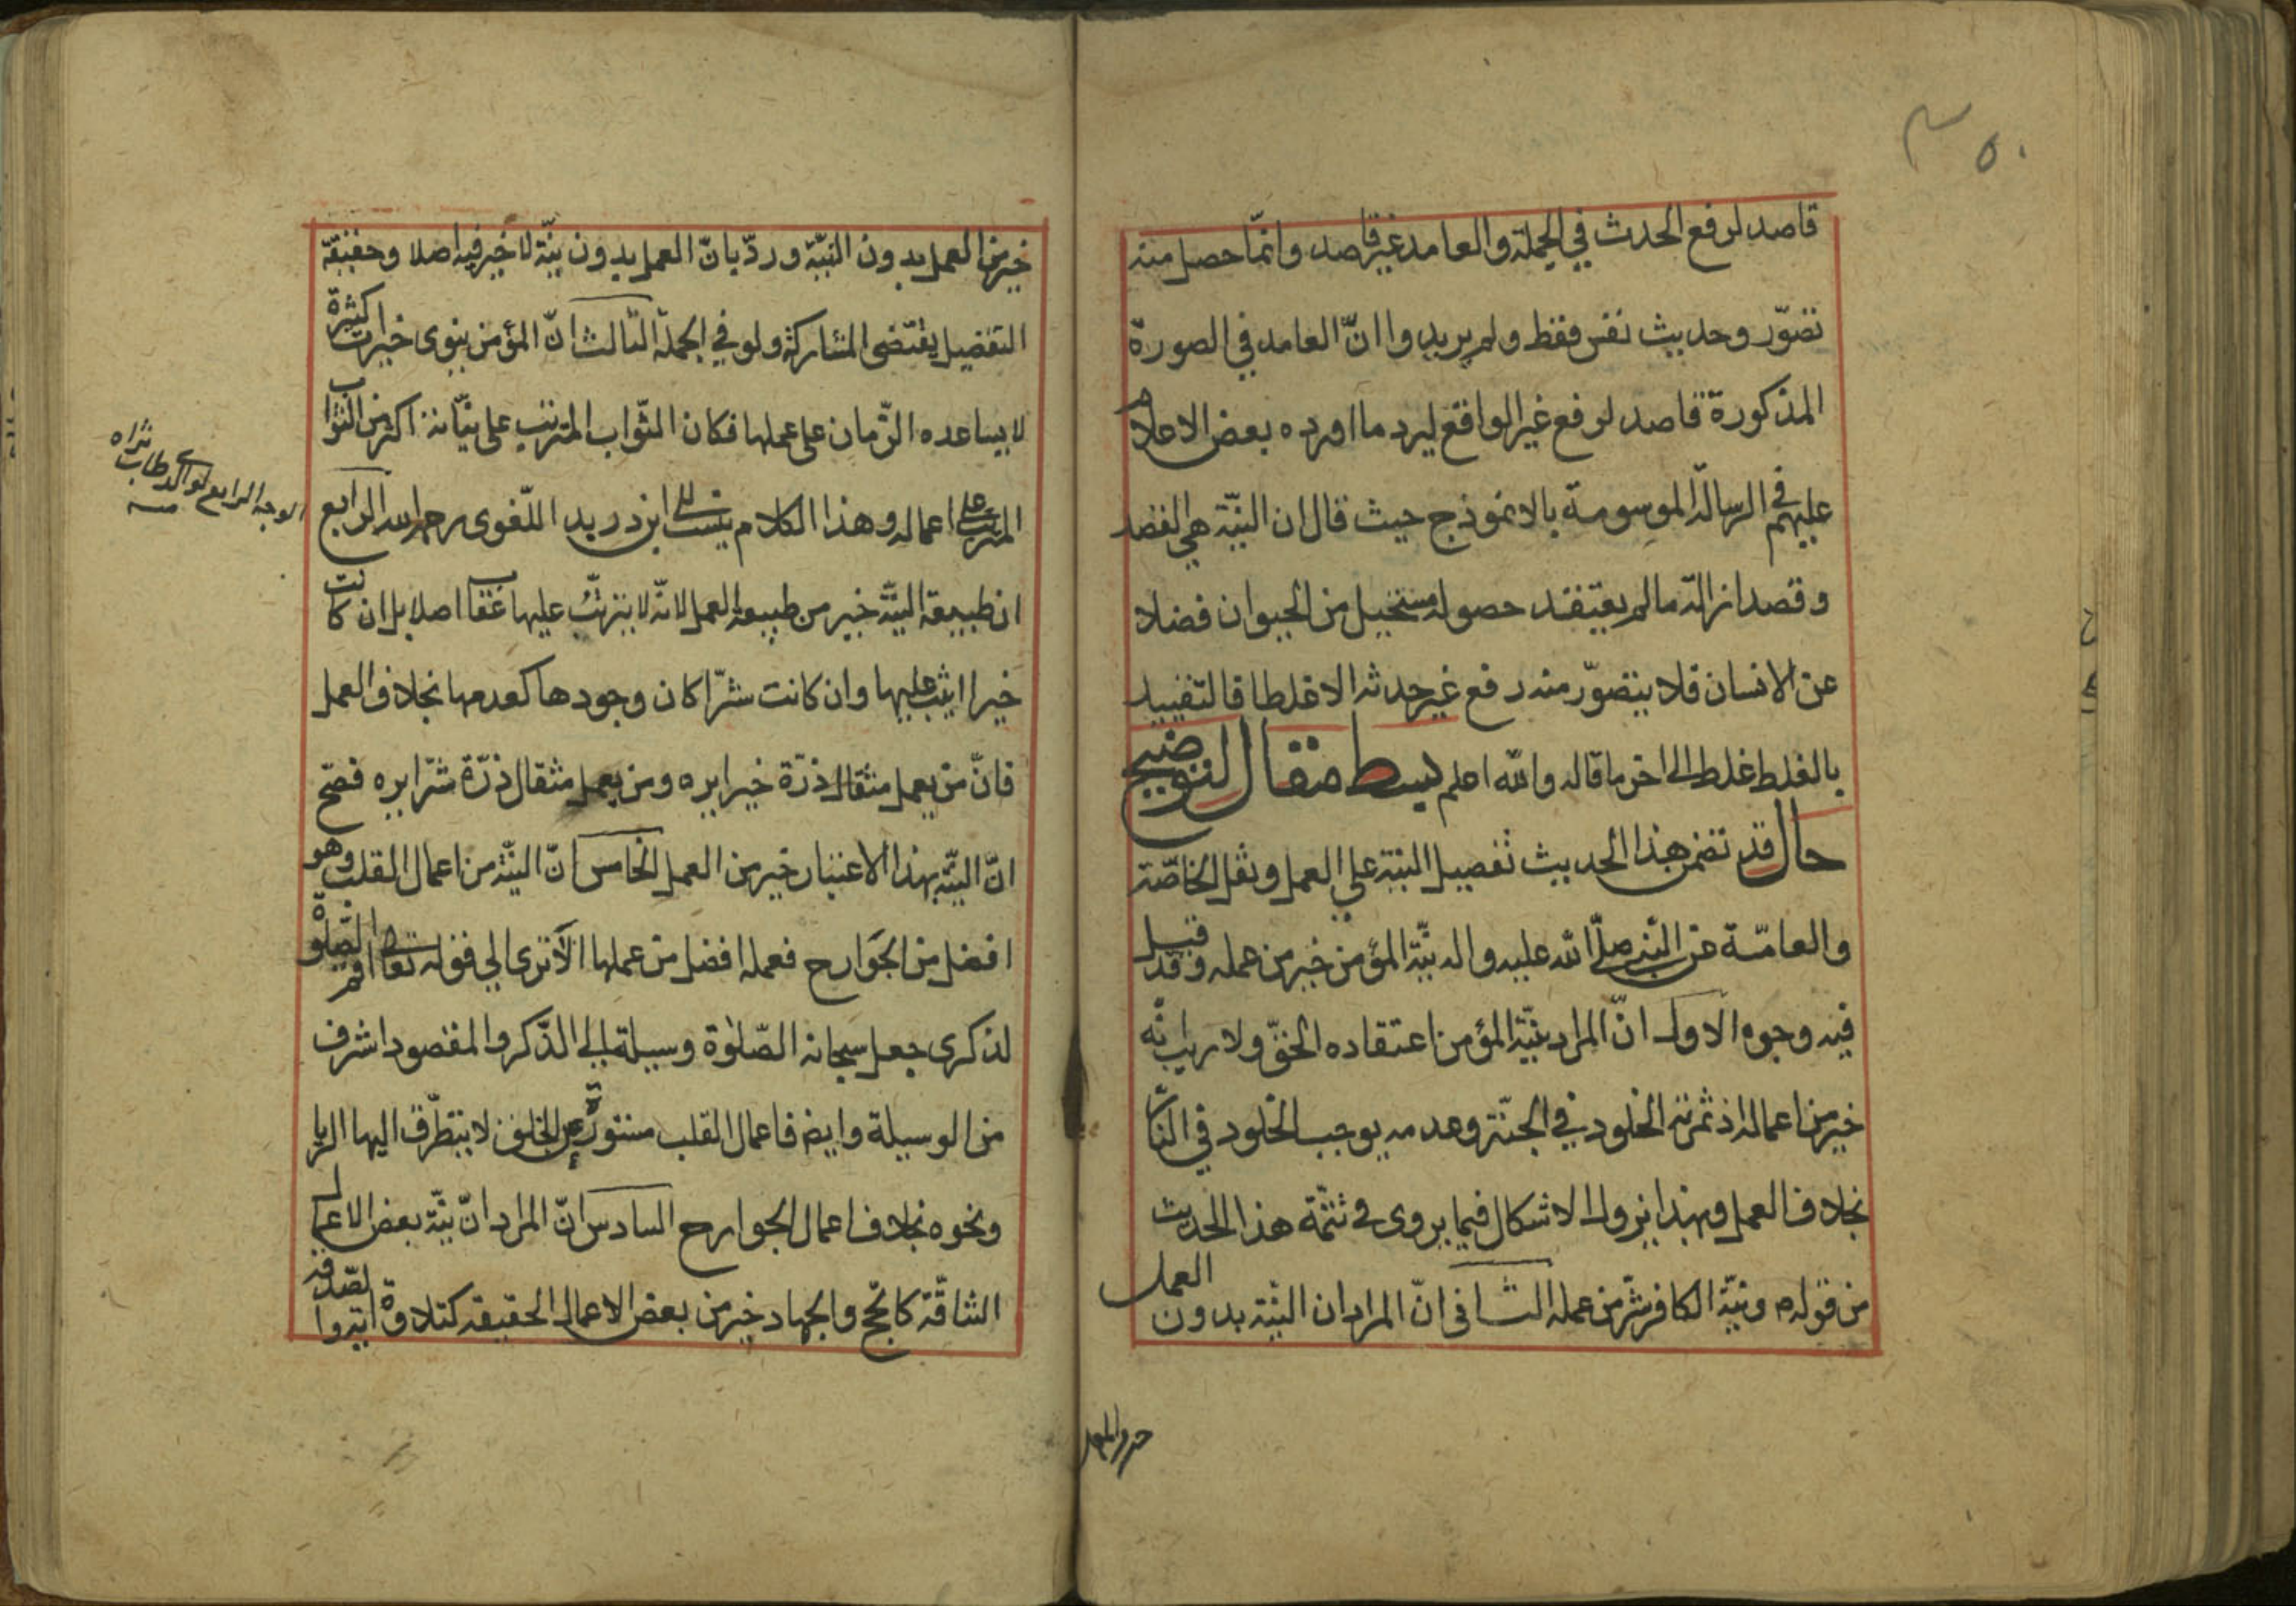 قاصد لرفع الحدث في الجملة والعامد غير قاصد وانّما حصل منه
تصوّر وحديث نفس فقط ولم يريدوا انّ العامد في الصورة
المذكورة قاصد لرفع غير الواقع ليرد ما اورده بعض الاعلام
عليهم في الرسالة الموسومة بالانموذج حيث قال ان النيّة هي القصد
وقصد ازالة ما لم يعتقد حصوله مستحيل من الحيوان فضلا
عن الانسان فلا يتصوّر منه رفع غير حدثه الا غلطا فالتقييد
بالغلط غلط الى اخر ما قاله والله اعلم بسط مقال لتوضيح
حال قد تضمن هذا الحديث تفضيل النية على العمل ونقل الخاصّة
والعامّة عن النبي صلّى الله عليه واله نيّة المؤمن خير من عمله وقد قيل
فيه وجوه الاول انّ المراد بنيّة المؤمن اعتقاده الحقّ ولا ريب انّه
خير من اعماله اذ ثمرته الخلود في الجنّة وعدمه يوجب الخلود في النار
بخلاف العمل وبهذا يزول الاشكال فيما يروى في تتمّة هذا الحديث
من قوله ص ونيّة الكافر شرّ من عمله الثاني انّ المراد ان النيّة بدون العمل
خير من العمل بدون النيّة وردّ بانّ العمل بدون نيّة لا خير فيه اصلا وحقيقة
التفضيل يقتضى المشاركة ولو في الجملة الثالث انّ المؤمن ينوى خيرات كثيرة
لا يساعده الزّمان على عملها فكان الثّواب المترتب على نيّاته اكثر من الثواب
المترتب على اعماله وهذا الكلام ينسب الى ابن دريد اللّغوى رحمه الله الرابع
الوجه الرابع لوالدي طاب ثراه
منه
ان طبيعة النيّة خير من طبيعة العمل لانّه لا يترتّب عليها عقاب اصلا بل ان كانت
خيرا اثيب عليها وان كانت شرّا كان وجودها كعدمها بخلاف العمل
فانّ من يعمل مثقال ذرّة خيرا يره ومن يعمل مثقال ذرّة شرّا يره فصّح
انّ النيّة بهذا الاعتبار خير من العمل الخامس انّ النيّة من اعمال القلب وهو
افضل من الجوارح فعمله افضل من عملها الا ترى الى قوله تعالى اقم الصّلوة
لذكرى جعل سبحانه الصّلوة وسيلة الى الذّكر والمقصود اشرف
من الوسيلة وايضا فاعمال القلب مستورة عن الخلق لا يتطرّق اليها الريا
ونحوه بخلاف اعمال الجوارح السادس انّ المراد انّ نيّة بعض الاعمال
الشاقّة كالحجّ والجهاد خير من بعض الاعمال الحقيقة كتلاوة اية والصّدقة